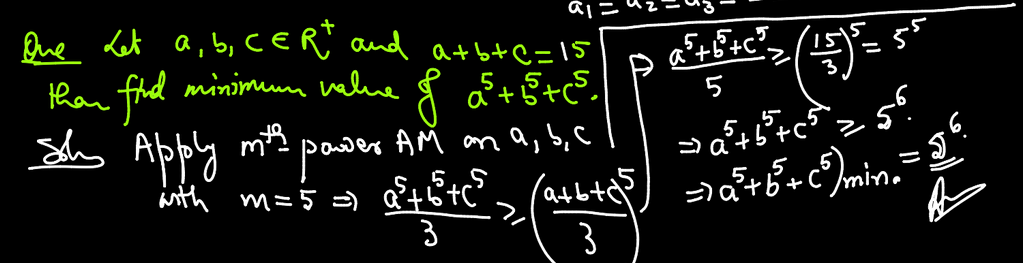 a₁ = a₂ = a₃ =
Que Let a, b, c ∈ R⁺ and a+b+c = 15
then find minimum value of a⁵+b⁵+c⁵.
Soln Apply mᵗʰ power AM on a, b, c
with m = 5 ⇒ (a⁵+b⁵+c⁵)/3 ≥ ((a+b+c)/3)⁵
(a⁵+b⁵+c⁵)/5 ≥ (15/3)⁵ = 5⁵
⇒ a⁵+b⁵+c⁵ ≥ 5⁶.
⇒ a⁵+b⁵+c⁵)min. = 5⁶.